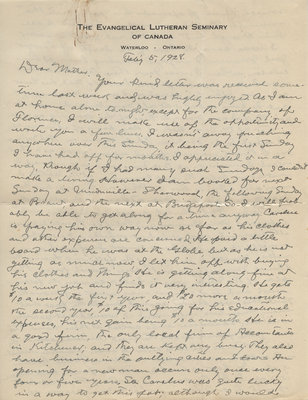 THE EVANGELICAL LUTHERAN SEMINARY
OF CANADA
WATERLOO - ONTARIO
Feb'y 5, 1928.
Dear Mother.
Your kind letter was received some-
time last week and was highly enjoyed. As I am
at home alone tonight except for the company of
Florence, I will make use of the opportunity and
write you a few lines. I wasn't away preaching
anywhere over this Sunday it being the first Sunday
I have had off for months. I appreciated it in a
way, though if I had many such Sundays I couldn't
make a living. I was down booked for next
Sunday at - Sherwood, the following Sunday
at and the next at Bridgeport so I will prob-
ably be able to get along for a time anyway. Carolus
is paying his own way now as far as his clothes
and other expenses are concerned. He paid a little
board when he was at the Globe but as he is not
getting as much now I let him off with buying
his clothes and things. He is getting along fine at
his new job and finds it very interesting. He gets
$10 a week the first year, and $20 more a month
the second year, 10 of this going for his educational
expenses, his net gain being $10 a month. He is in
a good firm, the only local firm of Accountants
in Kitchener, and they are kept very busy. They also
have business in the outlying cities and towns. An
opening for a new man occurs only once every
four or five years, so Carolus was quite lucky
in a way to get this job, although I would